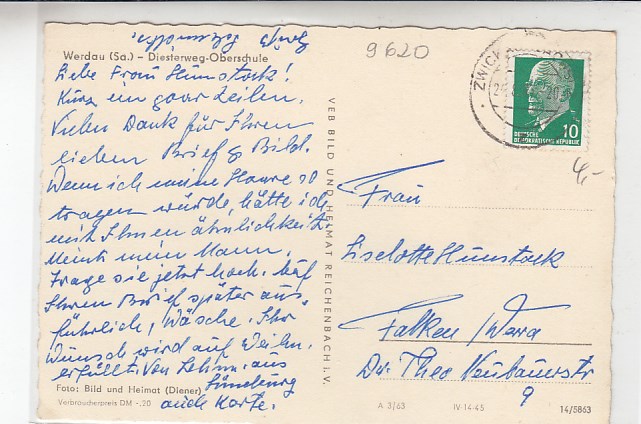 Werdau (Sa.) – Diesterweg-Oberschule
Liebe Frau Hunstock!
Kurz ein paar Zeilen.
Vielen Dank für Ihren
lieben Brief & Bild.
Wenn ich meine Haare so
tragen würde, hätte ich
mit Ihnen ähnlichkeit.
Meint mein Mann.
Trage sie jetzt hoch. Auf
Ihren Brief später aus,
führlich, Wäsche. Ihr
Wunsch wird auf Weihn.
erfüllt. Von Lehm. aus
Lüneburg
auch Karte.
Foto: Bild und Heimat (Diener)
Verbraucherpreis DM -.20
VEB BILD UND HEIMAT REICHENBACH i. V.
9620
ZWICKAU
10
DEUTSCHE
DEMOKRATISCHE REPUBLIK
4,-
Frau
Liselotte Hunstock
Falken / Werra
Dr. Theo Neubauerstr
9
A 3/63 IV-14-45 14/5863